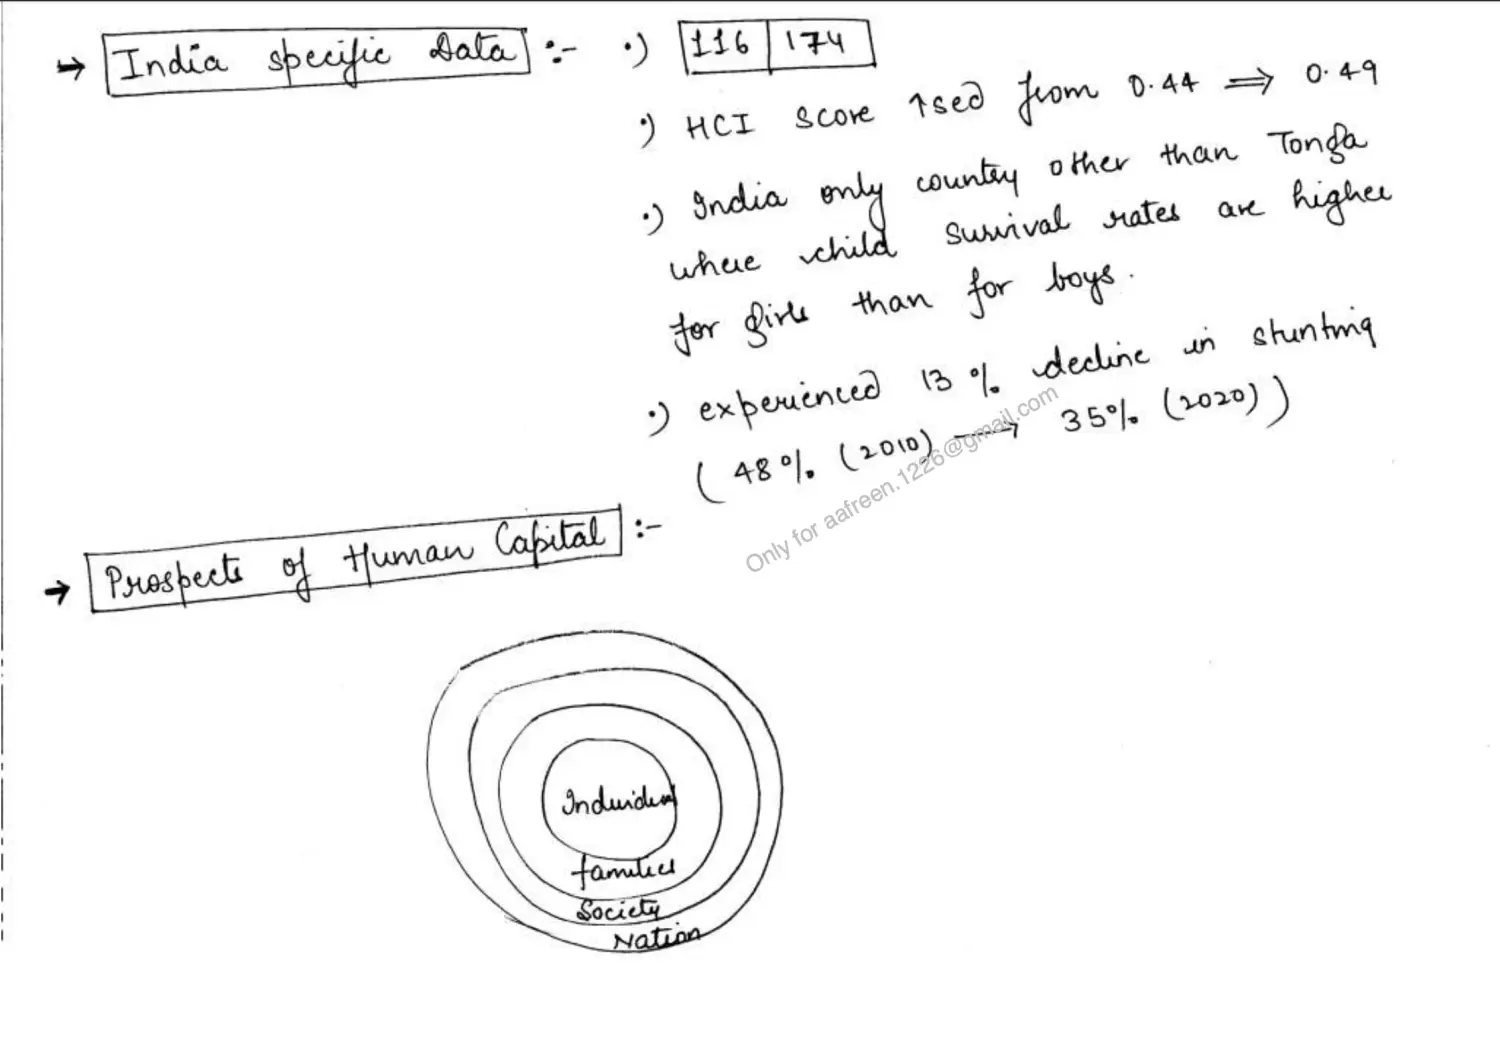 → India specific Data :- •) 116 | 174
•) HCI score ↑sed from 0.44 ⟹ 0.49
•) India only country other than Tonga
where child survival rates are higher
for girls than for boys.
•) experienced 13 % decline in stunting
( 48 % (2010) → 35% (2020) )
Only for aafreen.1226@gmail.com
→ Prospects of Human Capital :-
Individual
families
Society
Nation